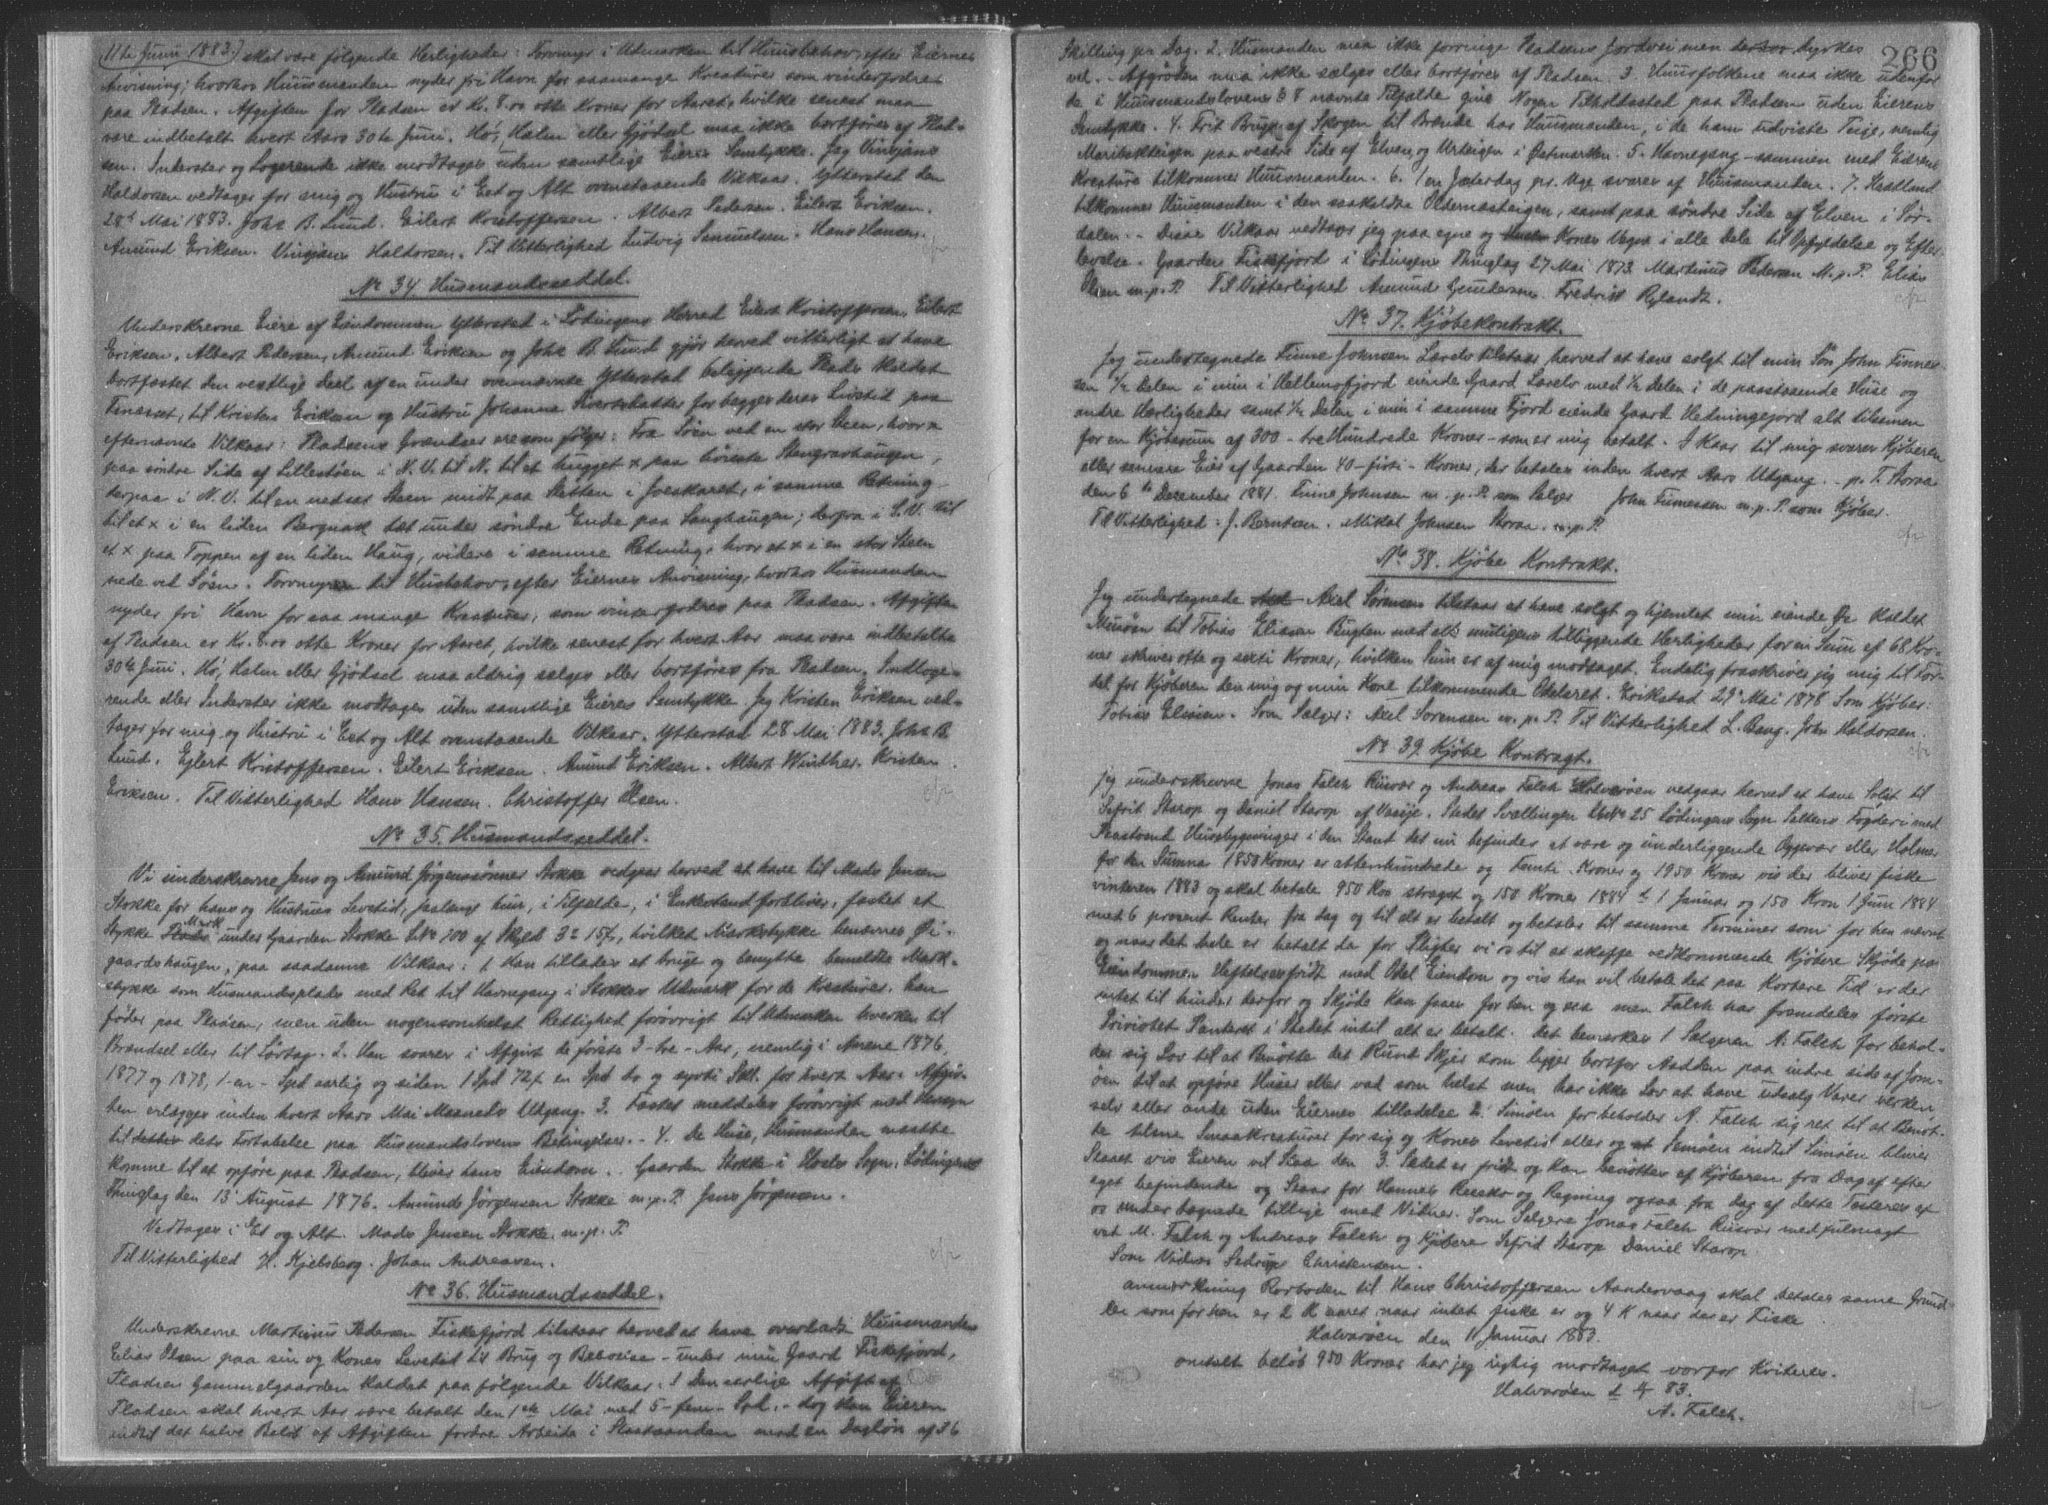 11te Juni 1883.) skal være følgende Herligheder: Torvmyr i Udmarken til Huusbehov, efter Eiernes
Anvisning; hvorhos Huusmanden nyder fri Havn for saamange Kreaturer som vinterfødres
paa Pladsen. Afgiften for Pladsen er Kr. 8.00 otte Kroner for Aaret, hvilke senest maa
være indbetalt hvert Aars 30te Juni. Hø, Halm eller Gjødsel maa ikke bortføres af Plad-
sen. Inderster og Logerende ikke modtages uden samtlige Eieres Samtykke. Jeg Vinsjans
Haldorsen vedtager for mig og Hustru i Eet og Alt ovenstaaende Vilkaar. Ytterstad den
28de Mai 1883. Johs B. Lund. Eilert Kristoffersen. Albert Pedersen. Eilert Eriksen.
Amund Eriksen. Vinsjans Haldorsen. Til Vitterlighed Ludvig Samuelsen. Hans Hansen.
No 34. Husmandsseddel.
Underskrevne Eiere af Eiendommen Ytterstad i Lødingens Herred Eilert Kristoffersen, Eilert
Eriksen, Albert Pedersen, Amund Eriksen og Johs B. Lund gjør herved vitterligt at have
bortfæstet den vestlige Deel af en under ovennævnte Ytterstad beliggende Plads kaldet
til Kristen Eriksen og Hustru Johanne for begges deres Livstid paa
efternævnte Vilkaar: Pladsens Grændser ere som følger: Fra Søen ved en stor Steen, hvor x
paa søndre Side af Lillestøen i N.V. til N. til et hugget x paa Stengravhaugen,
derpaa i N.V. til en nedsat Steen midt paa Sletten i i samme Retning
til et x i en liden Bergnak tæt under søndre Ende paa Langhaugen; derfra i S.V. til
et x paa Toppen af en liden Haug, videre i samme Retning, hvor et x i en stor Steen
nede ved Søen. Torvmyr til Husbehov, efter Eiernes Anvisning, hvorhos Husmanden
nyder fri Havn for saa mange Kreaturer, som vinterfødres paa Pladsen. Afgiften
af Pladsen er Kr. 8.00 otte Kroner for Aaret, hvilke senest for hvert Aar maa være indbetalte
30te Juni. Hø, Halm eller Gjødsel maa aldrig sælges eller bortføres fra Pladsen. Indloge-
rende eller Inderster ikke modtages uden samtlige Eieres Samtykke. Jeg Kristen Eriksen ved-
tager for mig og Hustru i Eet og Alt ovenstaaende Vilkaar. Ytterstad 28 Mai 1883. Johs B.
Lund. Eilert Kristoffersen. Eilert Eriksen. Amund Eriksen. Albert Winther. Kristen
Eriksen. Til Vitterlighed Hans Hansen. Christoffer Olsen.
No 35. Husmandsseddel.
Vi underskrevne Jens og Amund Jørgenssønner Stokke vedgaar herved at have til Mads Jensen
Stokke for hans og Hustrues Levetid, saalænge hun, i Tilfælde, i Enkestand forbliver, fæstet et
Stykke Mark under Gaarden Stokke LNo 100 af Skyld 3 15, hvilket Markstykke benævnes Øi-
gaardshaugen, paa saadanne Vilkaar: 1 Han tillades at bruge og benytte bemeldte Mark-
stykke som Husmandsplads med Ret til Havnegang i Stokkes Udmark for de Kreaturer, han
føder paa Pladsen, men uden nogensomhelst Rettighed forøvrigt til Udmarken hverken til
Brændsel eller til Løvtag. 2. Han svarer i Afgivt de første 3 - tre - Aar, nemlig i Aarene 1876,
1877 og 1878, 1 - en - Spd aarlig og siden 1 Spd 72 en Spd to og syvti Skl. for hvert Aar. Afgiv-
ten erlægges inden hvert Aars Mai Maaneds Udgang. 3. Fæstet meddeles forøvrigt med Hensyn
til dets Fortabelse paa Husmandslovens Betingelser. - 4. De Huse, Husmanden maatte
komme til at opføre paa Pladsen, bliver hans Eiendom. Gaarden Stokke i Hols Sogn, Lødingens
Thinglag den 13 August 1876. Amund Jørgensen Stokke m.p.P. Jens Jørgensen.
Vedtages i Et og Alt. Mads Jensen Stokke. m.p.P.
Til Vitterlighed H. Kjelsberg. Johan Andreassen.
No 36. Husmandsseddel.
Underskrevne Martinus Pedersen Fiskefjord tilstaar herved at have overladt Huusmanden
Elias Olsen paa sin og Kones Levetid til Brug og Beboelse - under min Gaard Fiskefjord,
Pladsen Gammelgaarden kaldet paa følgende Vilkaar: 1 Den aarlige Afgift af
Pladsen skal hvert Aar være betalt den 1ste Mai med 5 - fem - Spd. - dog kan Eieren
indtil det halve Beløb af Afgiften fordre Arbeide i Staden med en Dagløn af 36
266
Skilling pr Dag. 2. Husmanden maa ikke forringe Pladsens Jordvei men dyrkes
vel. Afgrøden maa ikke sælges eller bortføres af Pladsen. 3. Huusfolkene maa ikke udenfor
de i Huusmandslovens § 8 nævnte Tilfælde give Nogen Tilholdssted paa Pladsen uden Eierens
Samtykke. 4. Frit Brug af Skogen til Brænde har Huusmanden, i de ham udviste Teige, nemlig
paa vestre Side af Elven, og Urteigen i Østmarken. 5. Havnegang - sammen med Eierens
Kreature tilkommer Huusmanden. 6. 1 en Jæterdag pr. Uge svares af Huusmanden. 7.
tilkommer Huusmanden i den saakaldte samt paa søndre Side af Elven i Sør-
dalen. - Disse Vilkaar vedtager jeg paa egne og Kones Vegne i alle Dele til Opfyldelse og Efter-
levelse. Gaarden Fiskefjord i Lødingens Thinglag 27 Mai 1873. Martinus Pedersen M.p.P. Elias
Olsen m.p.P. Til Vitterlighed Amund Gundersen. Fredrist Rylandt.
No 37. Kjøbekontrakt.
Jeg undertegnede Finne Johnsen Lavels tilstaar herved at have solgt til min Søn John Finne-
sen ½ Delen i min i Hellemofjord eiende Gaard med ½ Delen i de paastaaende Huse og
andre Herligheder samt ½ Delen i min i samme Fjord eiende Gaard alt tilsammen
for en Kjøbesum af 300 - tre Hundrede Kroner - som er mig betalt. I Kaar til mig svarer Kjøberen
eller senere Eier af Gaarden 40 - firti - Kroner, der betales inden hvert Aars Udgang. - p. T. Storaa
den 6te Dezember 1881. Finne Johnsen m.p.P. som Sælger John Finnesen m.p.P. som Kjøber.
Til Vitterlighed: J. Berntsen. Mikal Johnsen Storaa. m.p.P.
No 38. Kjøbe Kontrakt.
Jeg undertegnede Axel Sørensen tilstaar at have solgt og hjemlet min eiende Øe kaldet
til Tobias Eliasen Bugten med alle muligens tilliggende Herligheder for en Sum af 68 Kro-
ner skriver otte og sexti Kroner, hvilken Sum er af mig modtaget. Endelig fraskriver jeg mig til For-
del for Kjøberen den mig og min Kone tilkommende Odelsret. Erikstad 29 Mai 1878 Som Kjøber:
Tobias Eliasen. Som Sælger: Axel Sørensen m.p.P. Til Vitterlighed L. Bang. John Haldorsen.
No 39. Kjøbe Kontragt.
jeg underskrevne Jonas Falch Risvær og Andreas Falch Halvarøen vedgaar herved at have Solgt til
Sefrit Starop og Daniel Starop af Stedet Svellingen LNo 25 Lødingens Sogn Saltens Fogderi med
Paastaaend Husebygninger i den Stand det nu befindes at være og underliggende Oggevær eller Holmer
for den Summa 1850 Kroner er attenhundrede og femti Kroner og 1950 Kroner vis der bliver fiske
vinteren 1883 og skal betale 950 Kro stragst og 150 Kroner 1884 d 1 Januar og 150 Kron 1 Juni 1884
med 6 prosent Renter fra dag og til alt er betalt og betales til samme Terminer som før her nevnt
og naar det hele er betalt da for pligter vi os til at skaffe vedkommende Kjøbere Skjøde paa
Eiendommen Heftelsesfridt med Odel Eiendom og vis han vil betale det paa kortere Tid er der
intet til hinder derfor og Skjøde kan faaes for hen og saa men Falch har fremdeles første
Panteret i Stedet intil alt er betalt. det bemerkes 1 Sælgeren A. Falch for behol-
der sig Lov til at Benøtte det Rund Skjer som ligger bortfor Nadden paa indre side af Jom-
øen til at opføre Huser eller vad som helst men har ikke Lov at have udsalg Varer verken
selv eller ande uden Eiernes tilladelse 2 Simøen for beholder A. Falch sig ret til at Benøt-
te tilene Smaakreaturer for sig og Kones Levetid eller og at Simøen indtil Simøen bliver
Staaet vis Eieren vil Staa den 3. Stedet er fridt og kan benøttes af Kjøberen fra Dag af efter
eget befindende og Staar for Hannes Reseko og Regning ogsaa fra dag af dette Testeres af
os under tegnede tillige med Vidner. Som Selgere Jonas Falch Risvær med fulmagt
vet M. Falch og Andreas Falch og Kjøbere Sefrid Starop Daniel Starop
Som Vidner Sedrup Christensen.
anmerkning Rorboden til Hans Christoffersen Aandervaag skal betales same Grund-
leie som før hen er 2 K aaret naar intet fiske er og 4 K naar der er Fiske
Halvarøen den 11 Januar 1883.
omtalt beløb 950 Kroner har jeg rigtig modtaget vorfor Kviteres.
Halvarøen d 83.
A. Falch.